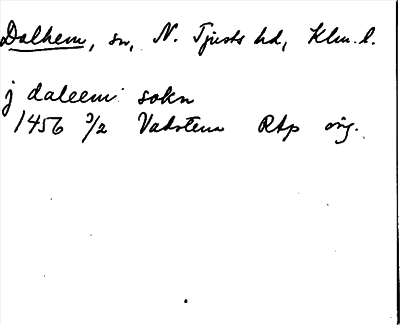 Dalhem, sn, N. Tjusts hd, Klm. l.
j daleem sokn
1456 3/2 Vadstena RAp orig.